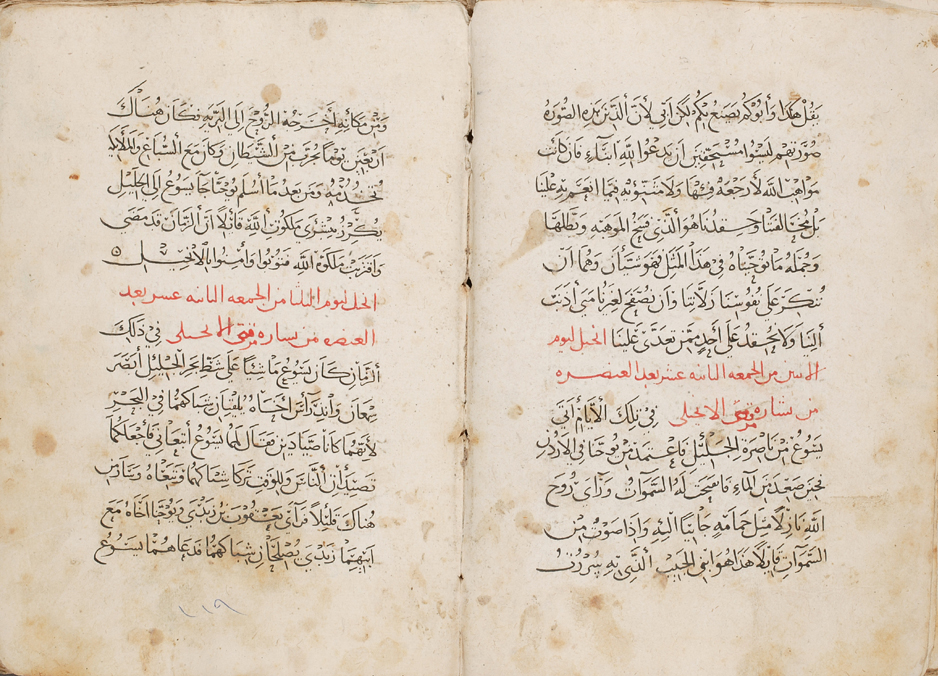 يقل هكذا وأبوكم يصنع بكم لكن أبي لأن الذين بهذه الصوره
صورتهم ليسوا مستحقين أن يدعوا الله ابتاه فان كانت
مواهب الله لا رجعة فيها ولا مثنوية فيما انعم به علينا
بل مخالفتنا وحقدنا هو الذي فسخ الموهبه وبطلها
وجمله ما توخيناه في هذا المثل فهو شيئان وهما ان
نتكرر علي نفوسنا زلاتنا وان نصفح لغيرنا متي أذنب
الينا ولا نحقد علي أحد ممن تعدي علينا انجيل ليوم
الاثنين من الجمعه الثانيه عشر بعد العنصره
من بشاره مرقس الانجيلي في تلك الأيام أتي
يسوع من ناصرة الجليل فاعتمد من يوحنا في الاردن
فحين صعد من الماء فاضحت له السموات ورأي روح
الله نازلا مثل حمامه جائيا اليه واذا صوت من
السموات قايلا هذا هو ابني الحبيب الذي به سررت
ومن مكانه أخرجه الروح إلي البريه فكان هناك
أربعين يوما يجرب من الشيطان وكان مع السباع والملائكه
تخدمه ومن بعد ما أسلم يوحنا جا يسوع إلي الجليل
يكرز ببشري ملكوت الله قائلا ان الزمان قد مضي
واقتربت ملكوة الله فتوبوا وأمنوا بالانجيل
انجيل ليوم الثلثا من الجمعه الثانيه عشر بعد
العنصره من بشاره مرقس الانجيلي في ذلك
الزمان كان يسوع ماشيا علي شط بحر الجليل أبصر
سمعان واندراس أخاه يلقيان شباكهما في البحر
لأنهما كانا صيادين فقال لهما يسوع أتبعاني فأجعلكما
تصيدان الناس وللوقت تركا شباكهما وتبعاه وتنادس
هناك قليلا فرأي يعقوب بن زبدي ويوحنا اخاه مع
ابيهما زبدي يصلحان شباكهما فدعاهما يسوع
٢١٩